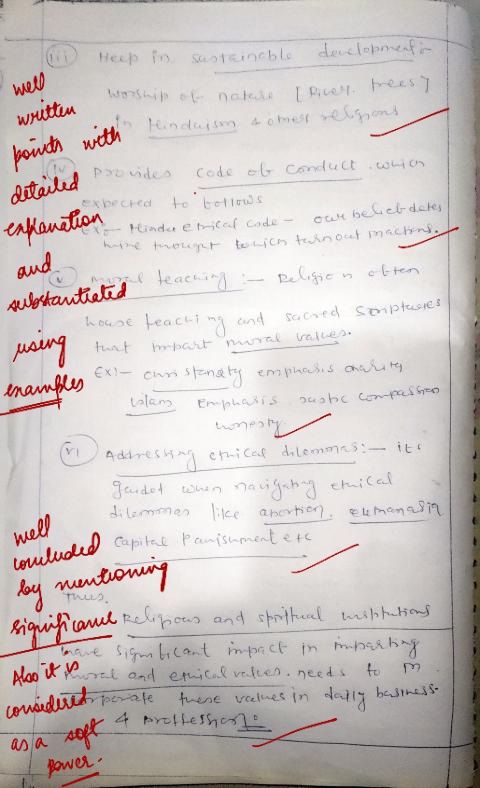 iii) Help in sustainable development:-
worship of nature [River, trees]
in Hinduism & other religions
iv) Provides code of conduct. which
expected to follows
Ex:- Hindu ethical code - our belief dates
thought which turn out
v) moral teaching :- Religion often
house teaching and sacred scriptures
that impart moral values.
Ex:- christanaty emphasis charity
Islam Emphasis compassion
honesty
vi Addressing ethical dilemmas:- its
guidet when navigating ethical
dilemmas like abortion,
capital Punishment etc
Thus,
Religious and spritual institutions
have significant impact in imparting
moral and ethical values. needs to in
corporate these values in daily business
& proffession.
well
written
points with
detailed
explanation
and
substantiated
using
examples
well
concluded
by mentioning
significance
Also it is
considered
as a soft
power.